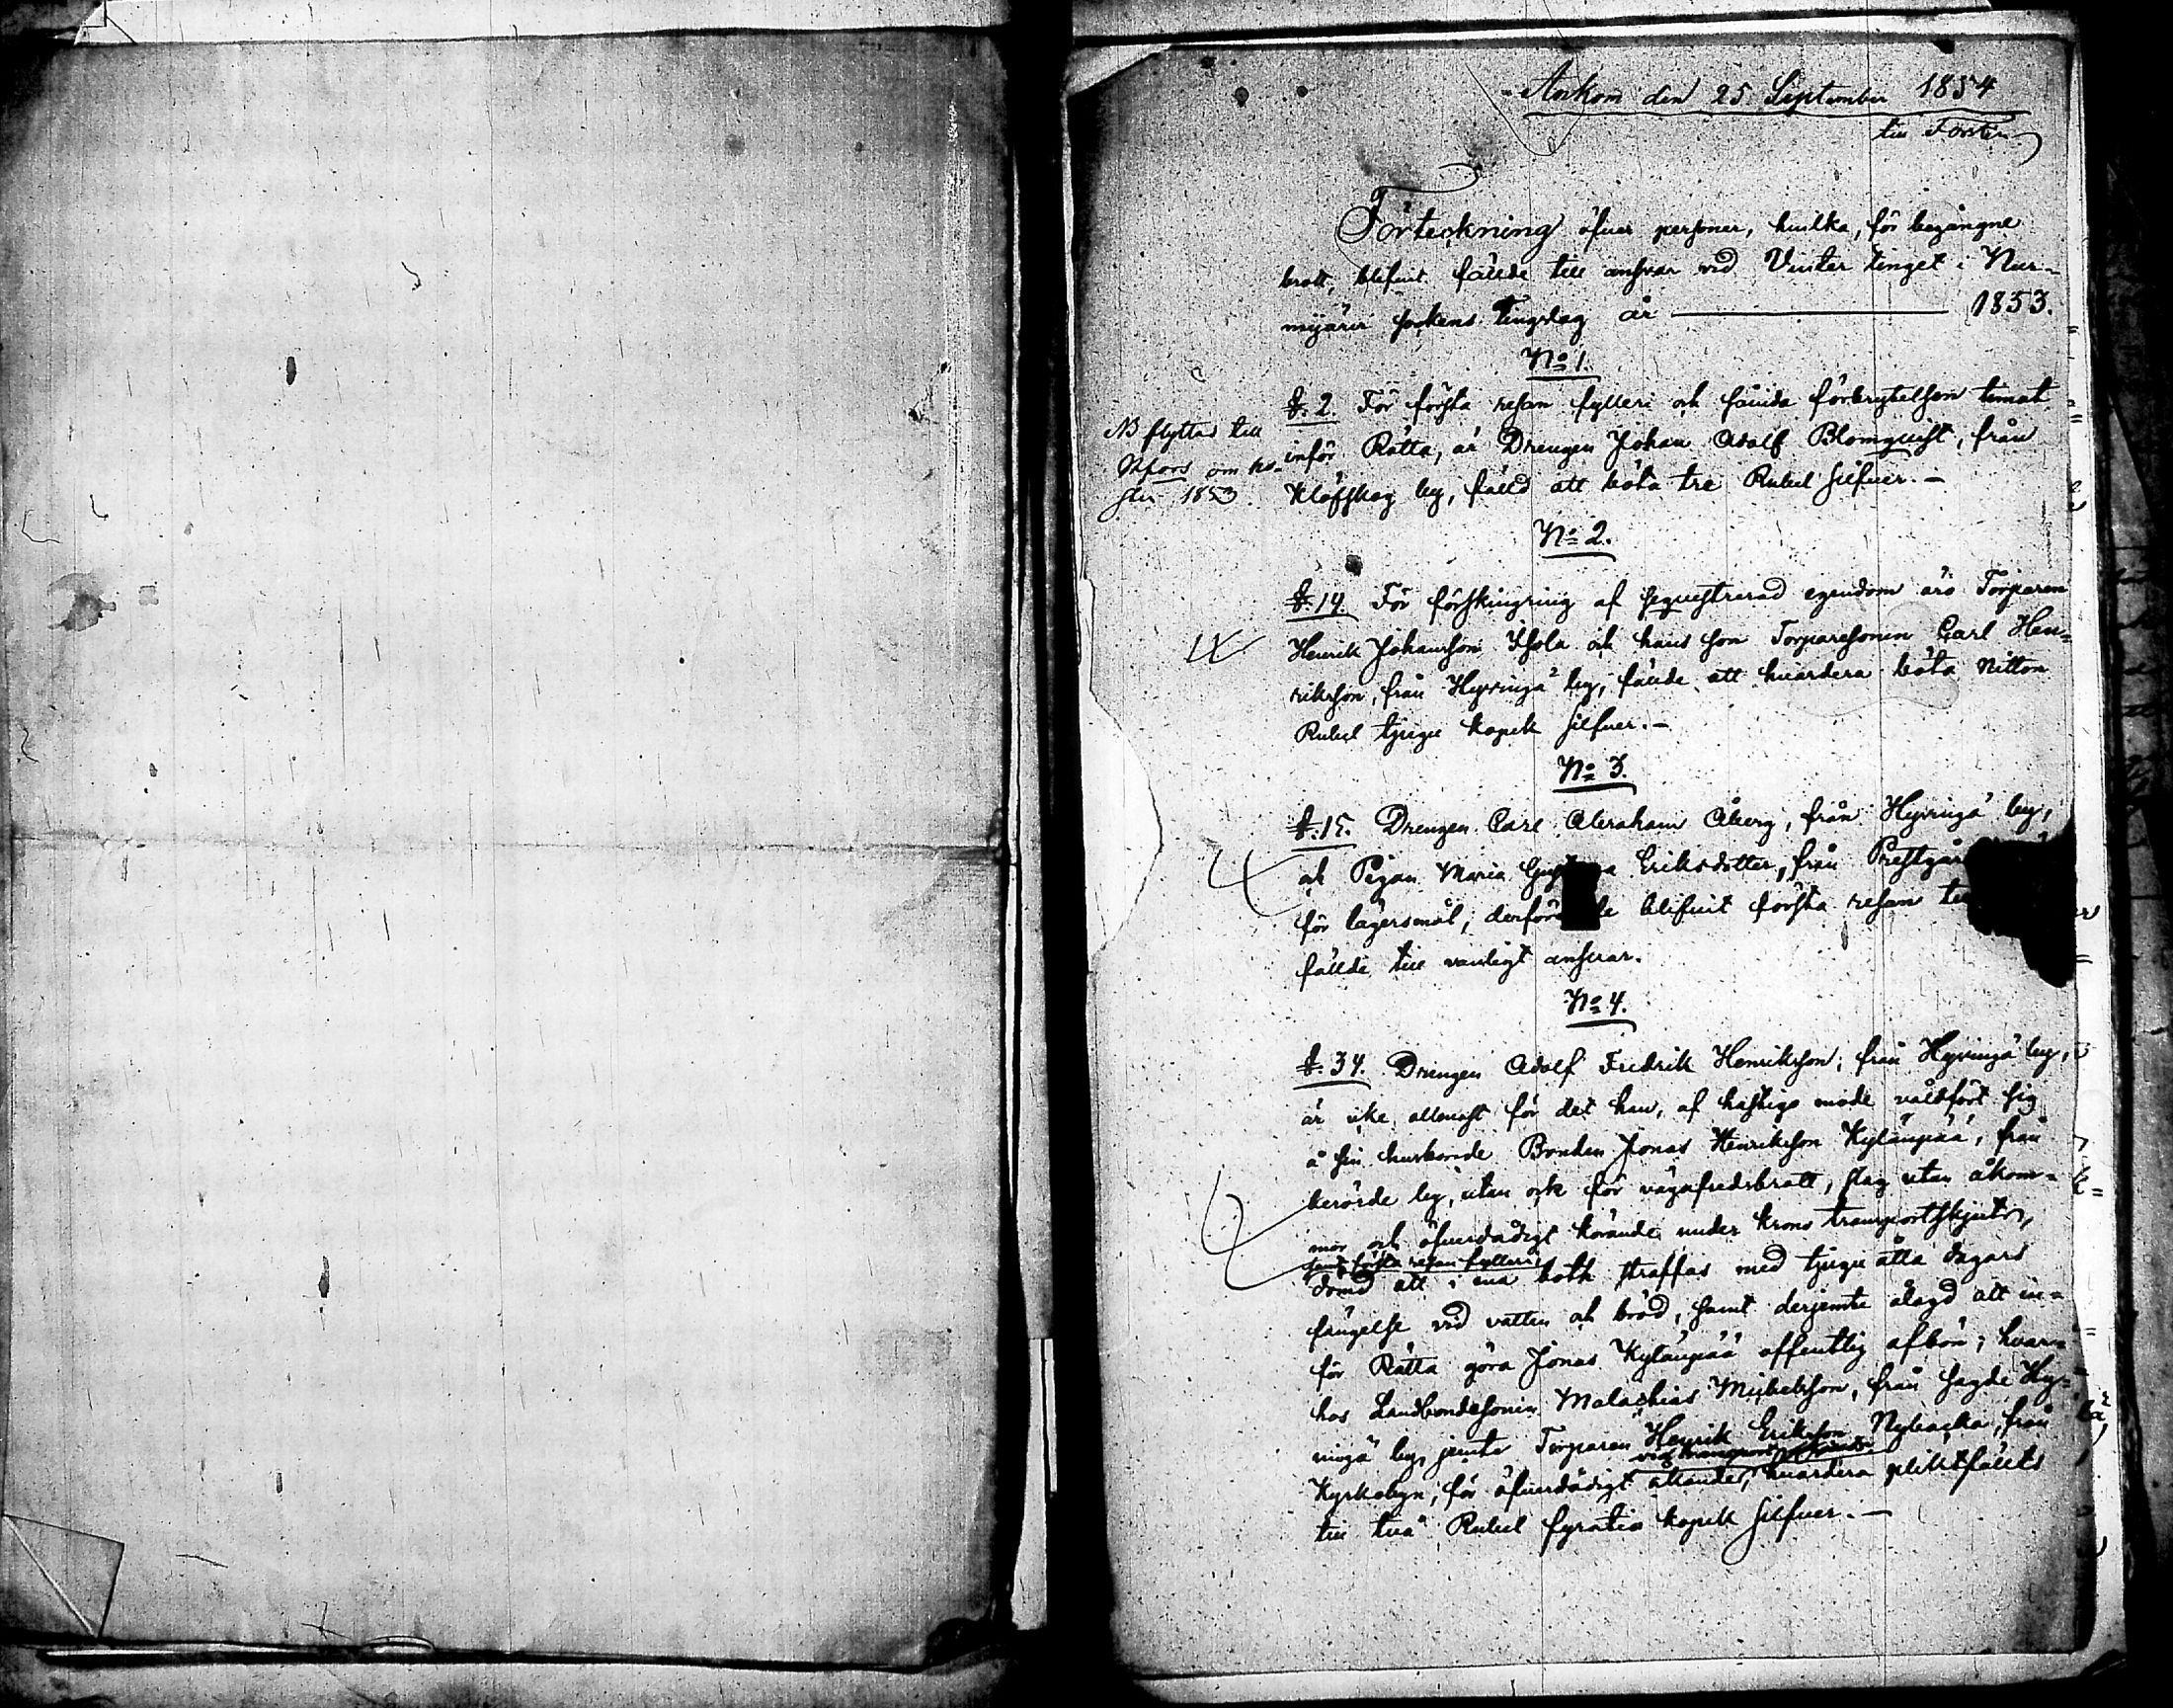 Ankom den 25 September 1854
Förteckning öfver personer, hvilka, för begångne
brott, blifvit fällde till ansvar vid Vinter tinget i Nur-
mijärvi sockens Tingslag år 1853.
No 1.
§. 2. För första resan fylleri och sådan förbrytelse timat
inför Rätta, är Drengen Johan Adolf Blomqvist, från
Klöfskog by, fälld att böta tre Rubel silfver.-
NB flyttad till
Hfors om hö-
sten 1853
No 2.
§. 14. För förskingring af sequestrerad egendom äro Torparen
Henrik Johansson Isola och hans son Torparesonen Carl Hen-
riksson, från Hyvingä by, fällde att hvardera böta nitton
Rubel tjugu kopek silfver.-
No 3.
§. 15. Drengen Carl Abraham Åberg, från Hyvingä by,
och Pigan Maria Eriksdotter, från
för lägersmål, blifvit första resan
fällde till vanligt ansvar.
No 4.
§. 34. Drengen Adolf Fredrik Henriksson, från Hyvingä by,
är icke allenast för det han, af hastigo mode våldfört sig
å sin husbonde Bonden Jonas Henriksson Kylänpää, från
berörde by, utan ock för vägafredsbrott, slag utan åkom-
mor och öfverdådigt körande under krono transportskjuts,
samt första resan fylleri
dömd att i ena bott straffas med tjugu åtta dagars
fängelse vid vatten och bröd, samt derjemte ålagd att in-
för Rätta göra Jonas Kylänpää offentlig afbön; hvar-
hos Landbondesonen Malachias Michelsson, från sagde Hy-
vingä by, jemte Torparen Henrik Eriksson Nybacka, från
Kyrkobyn, för öfverdådigt åkande, hvardera pliktfälts
till två Rubel fyratio kopek silfver.-